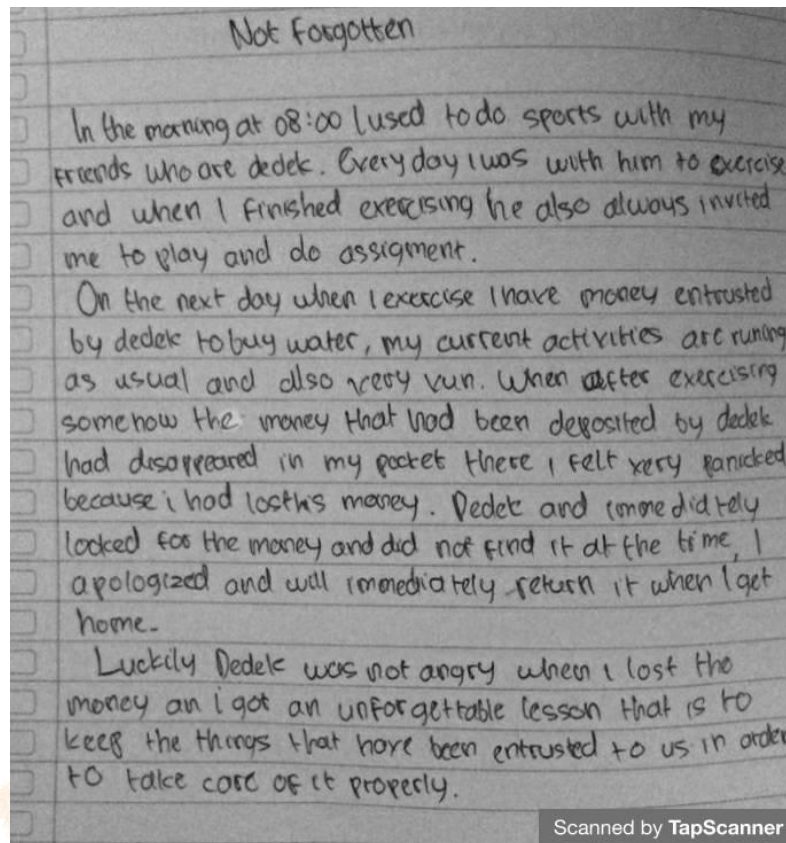 Not Forgotten
In the morning at 08:00 I used to do sports with my
friends who are dedek. Every day I was with him to exercise
and when I finished exercising he also always invited
me to play and do assigment.
On the next day when I exercise I have money entrusted
by dedek to buy water, my current activities are runing
as usual and also very vun. When after exercising
somehow the money that had been deposited by dedek
had disappeared in my pocket there I felt very panicked
because i had lost his money. Dedek and immediately
looked for the money and did not find it at the time, I
apologized and will immediately return it when I get
home.
Luckily Dedek was not angry when i lost the
money an i got an unforgettable lesson that is to
keep the things that have been entrusted to us in order
to take care of it properly.
Scanned by TapScanner